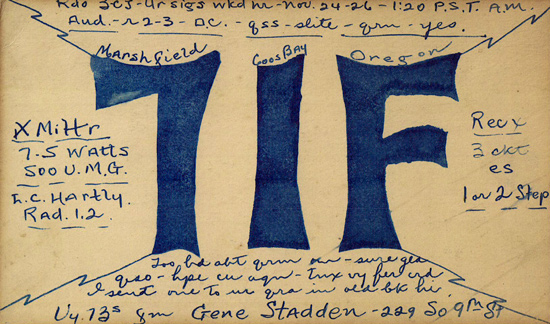 Rdo 3CJ-Ur sigs wkd hr-Nov. 24-26-1:20 P.S.T. A.M.
Aud.-r2-3-D.C.-qss-slite-qrm-yes.
Marshfield Coos Bay Oregon
7IF
X Mittr
7.5 Watts
500 U.M.G.
I.C. Hartly.
Rad. 1.2.
Recx
3 ckt
es
1 or 2 Step
Too bd abt qrm om-sure gld
qso-hpe cu agn-Tnx vy fer crd
I sent one to ur qra in old bk hi.
Vy. 73s gm Gene Stadden-229 So 9th St